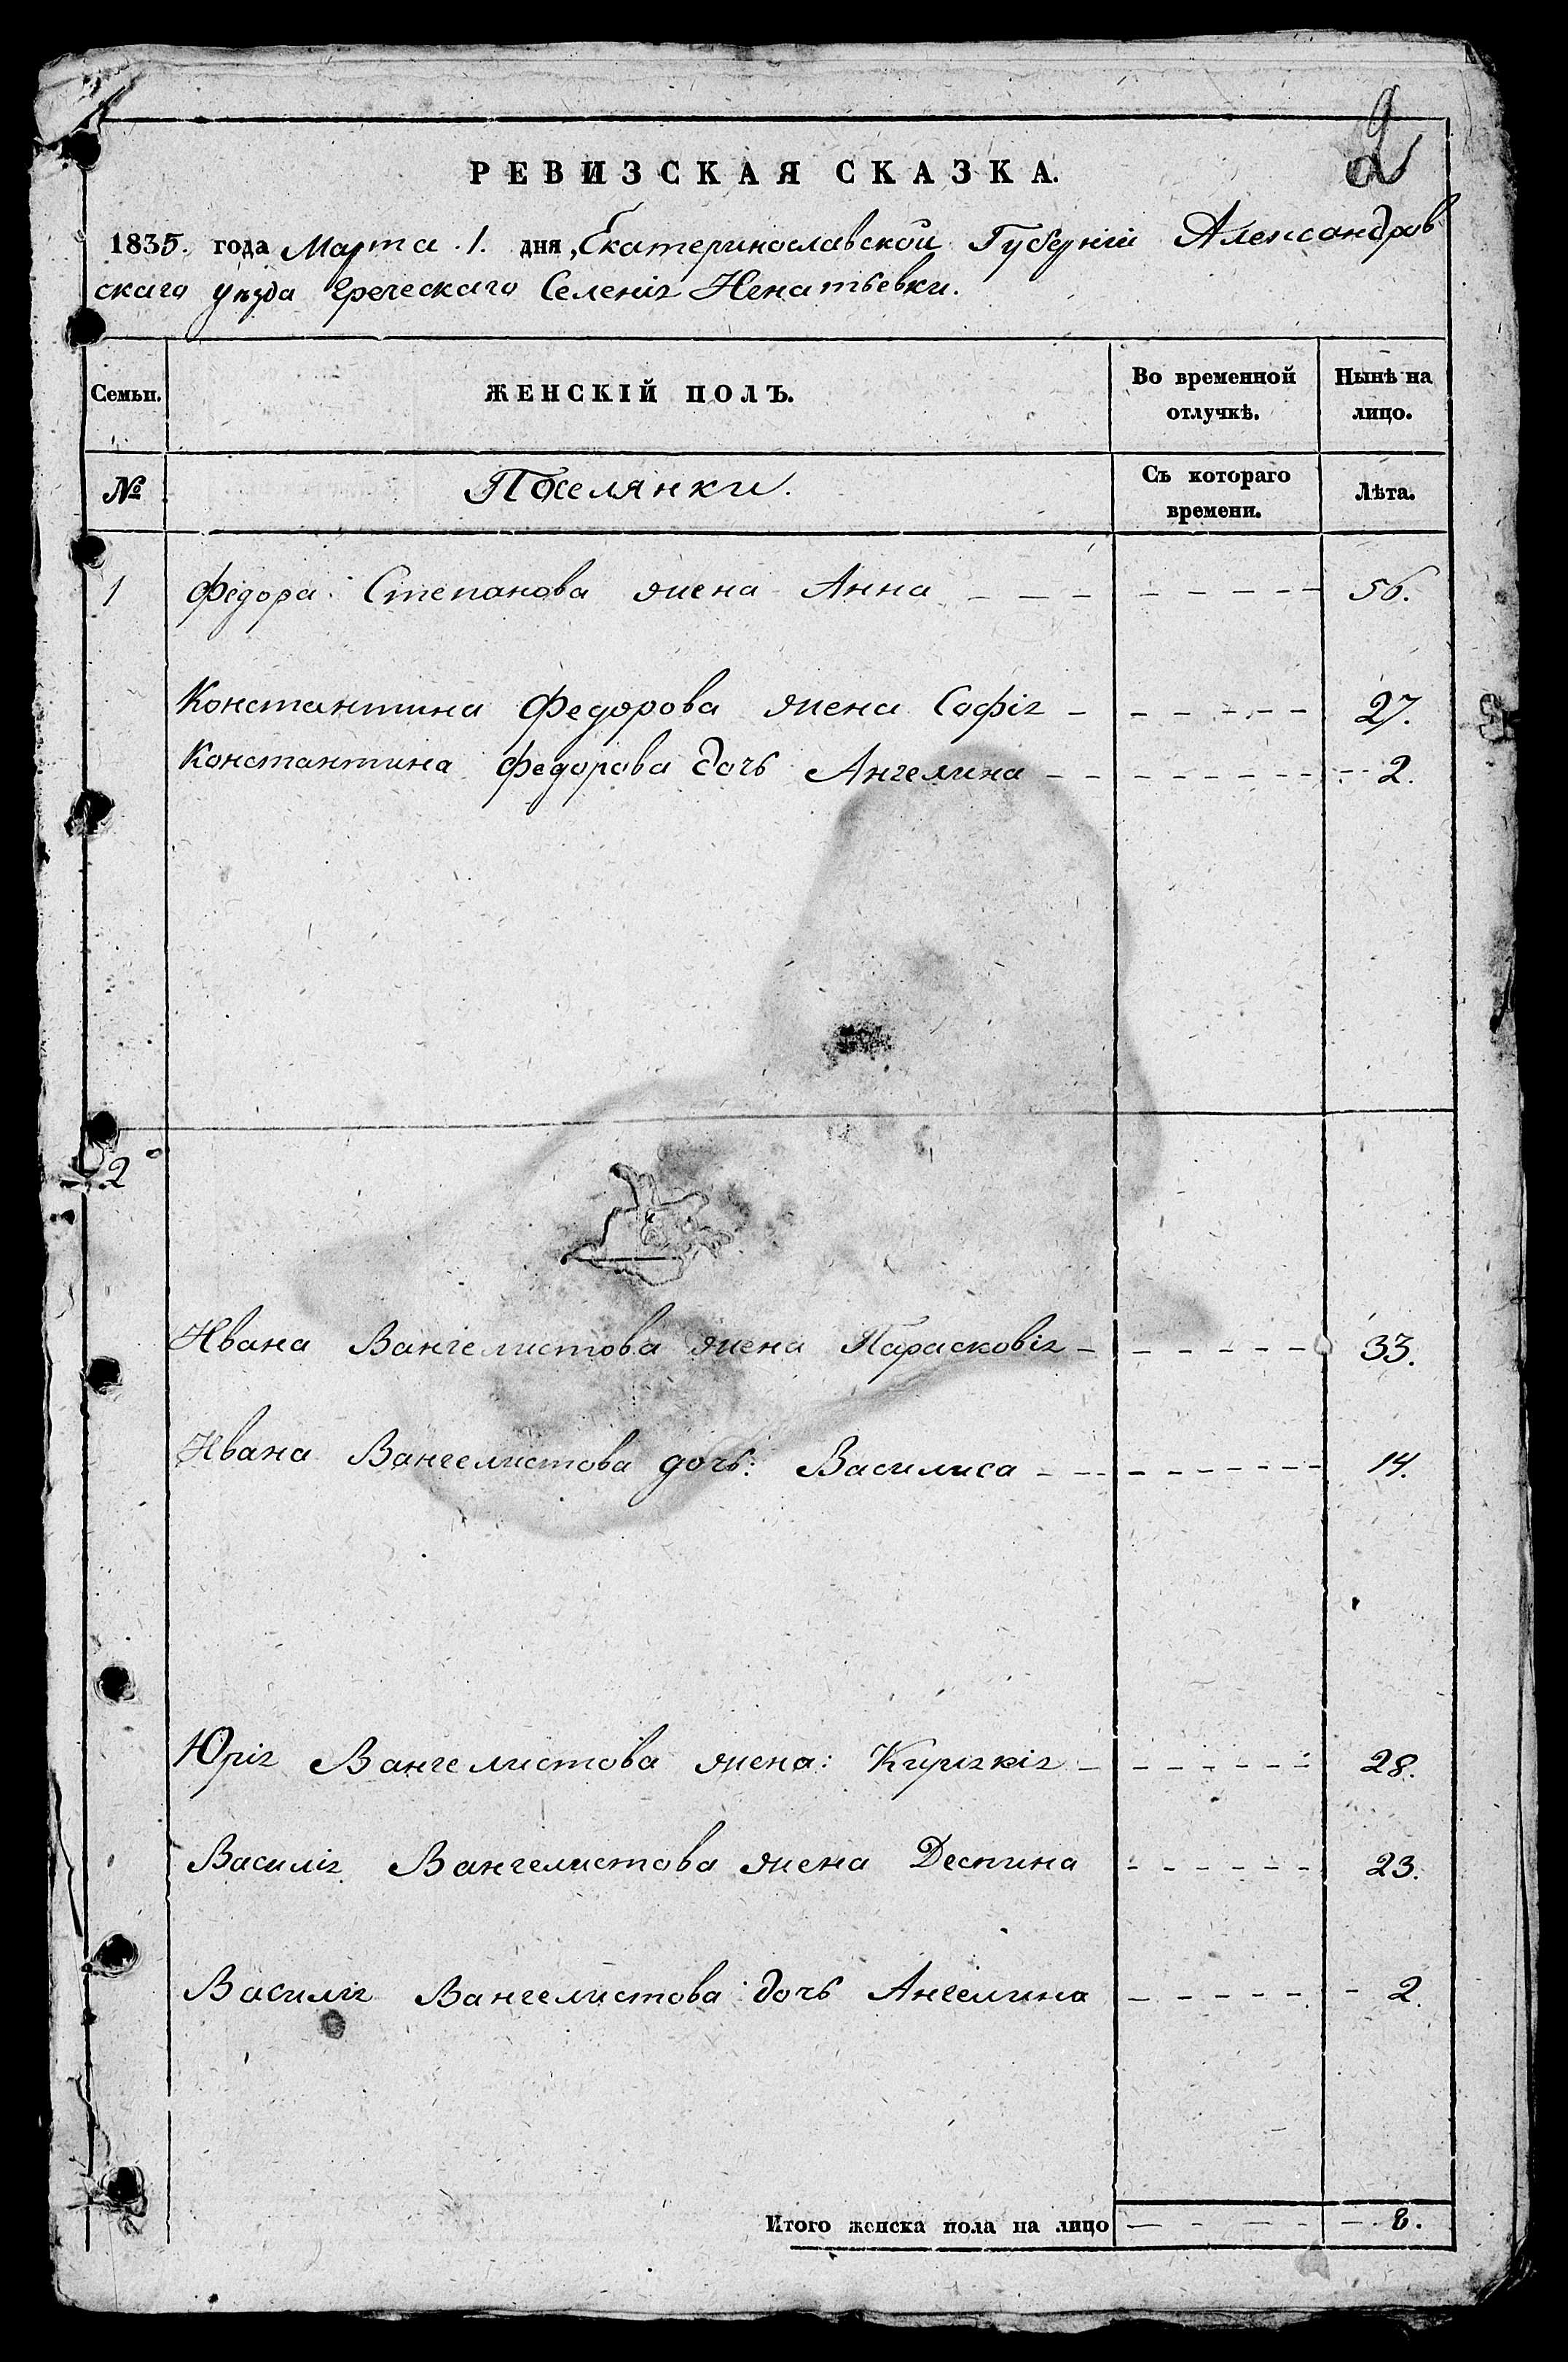 2
РЕВИЗСКАЯ СКАЗКА.
1835. года Марта .1. дня, Екатеринославской Губерніи Александров
скаго уѣзда Греческаго Селенія Игнатьевки.
Семьи. ЖЕНСКІЙ ПОЛЪ. Во временной отлучкѣ. Нынѣ на лицо.
№ Поселянки. Съ котораго времени. Лѣта.
1 Федора Степанова жена Анна 56.
Константина Федорова жена Софія 27.
Константина Федорова дочь Ангелина 2.
2
Ивана Вангелистова жена Парасковія 33.
Ивана Вангелистова дочь: Василиса 14.
Юрія Вангелистова жена: Киріякія 28.
Василія Вангелистова жена Деспина 23.
Василія Вангелистова дочь Ангелина 2.
Итого женска пола на лицо 8.